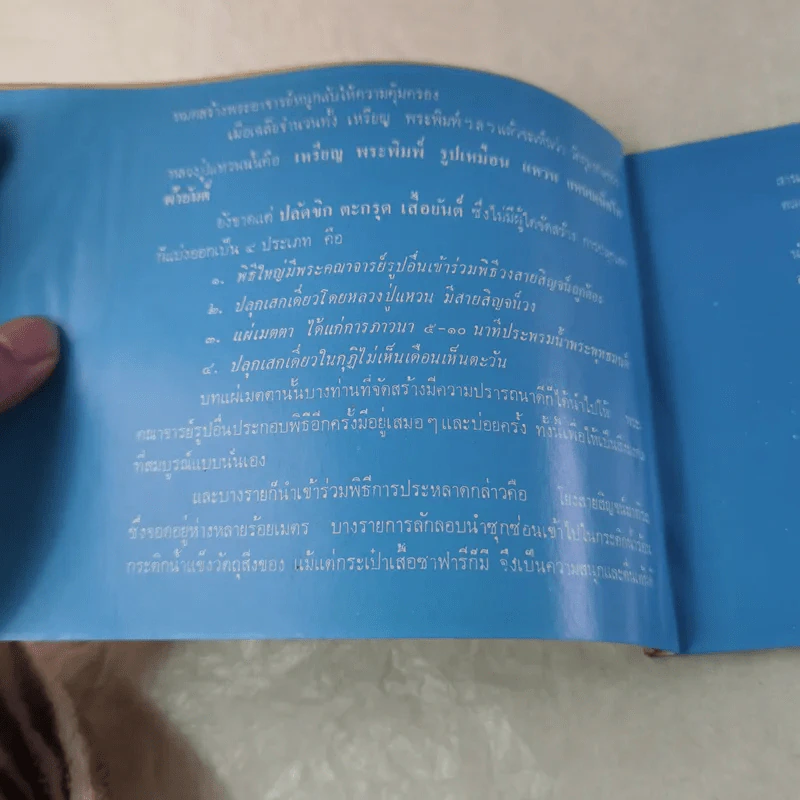 หมดสร้างพระอาจารย์หนูกลับให้ความคุ้มครอง
เมื่อเฉลี่ยจำนวนทั้ง เหรียญ พระพิมพ์ ฯลฯ แล้วจะเห็นว่า
หลวงปู่แหวนนั้นคือ เหรียญ พระพิมพ์ รูปเหมือน แหวน
ยังขาดแต่ ปลัดขิก ตะกรุด เสื้อยันต์ ซึ่งไม่มีผู้ใดจัดสร้าง
ก็แบ่งออกเป็น ๔ ประเภท คือ
๑. พิธีใหญ่มีพระคณาจารย์รูปอื่นเข้าร่วมพิธีวงสายสิญจน์ถูกต้อง
๒. ปลุกเสกเดี่ยวโดยหลวงปู่แหวน มีสายสิญจน์วง
๓. แผ่เมตตา ได้แก่การภาวนา ๕-๑๐ นาทีประพรมน้ำพระพุทธมนต์
๔. ปลุกเสกเดี่ยวในกุฏิไม่เห็นเดือนเห็นตะวัน
บทแผ่เมตตานั้นบางท่านที่จัดสร้างมีความปรารถนาดีก็ได้นำไปให้
คณาจารย์รูปอื่นประกอบพิธีอีกครั้งมีอยู่เสมอ ๆ และบ่อยครั้ง ทั้งนี้เพื่อให้เป็น
ที่สมบูรณ์แบบนั่นเอง
และบางรายก็นำเข้าร่วมพิธีการประหลาดกล่าวคือ โยงสายสิญจน์
ซึ่งจอดอยู่ห่างหลายร้อยเมตร บางรายการลักลอบนำซุกซ่อนเข้าไปในกระติกน้ำร้อน
กระติกน้ำแข็งวัตถุสิ่งของ แม้แต่กระเป๋าเสื้อซาฟารีก็มี จึงเป็นความสนุกและตื่นเต้น